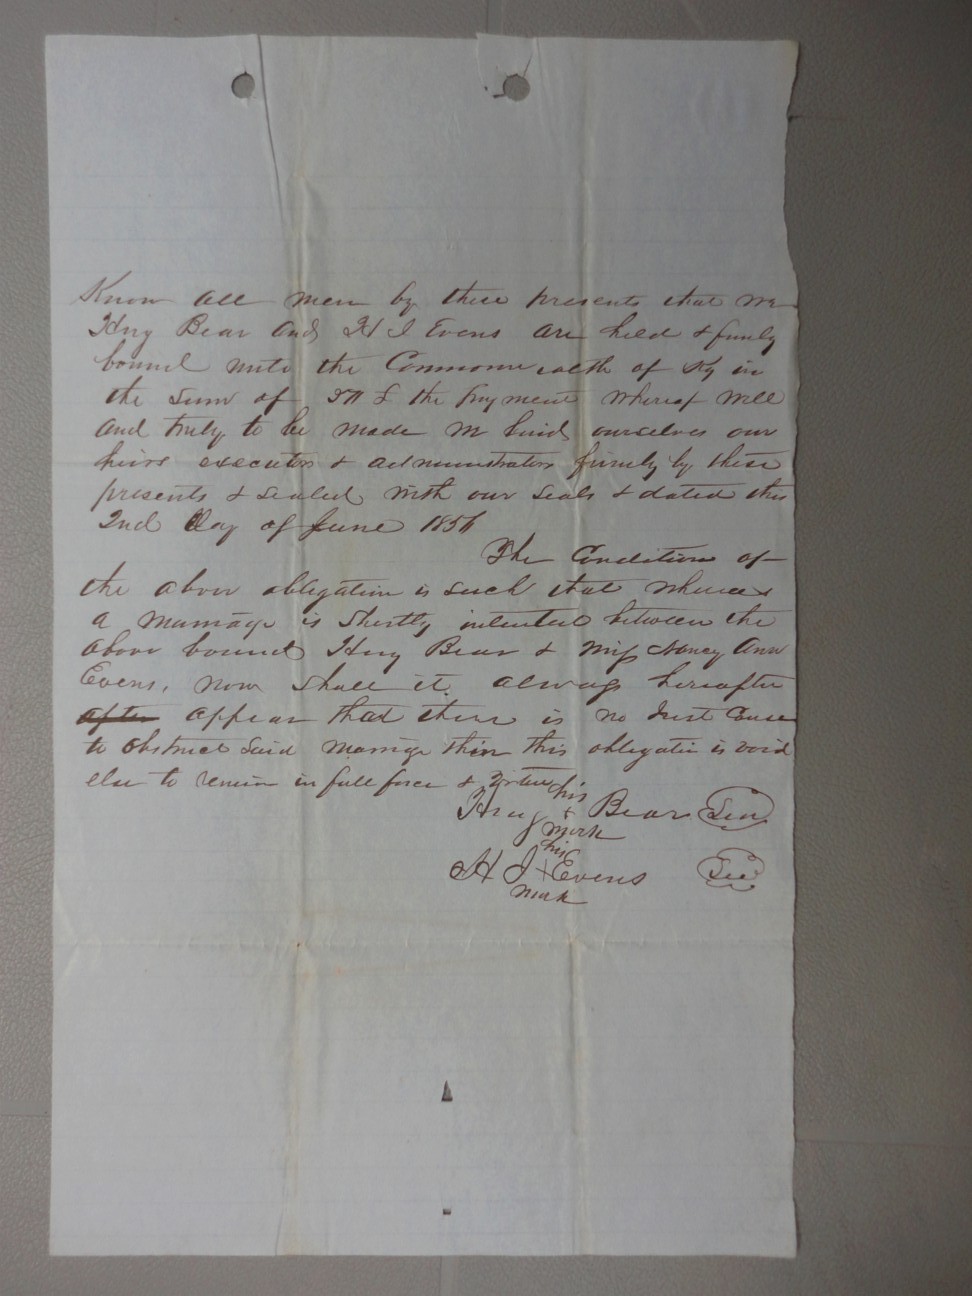 Know all men by these presents that we
Hnry Bear and H J Evens are held & firmly
bound unto the Commonwealth of Ky in
the Sum of the payment whereof well
and truly to be made we bind ourselves our
heirs executors & administrators firmly by these
presents & sealed with our seals & dated this
2nd Day of June
The Condition of
the above obligation is such that whereas
a marriage is shortly intended between the
above bound Hnry Bear & Miss Nancy Ann
Evens, now shall it always hereafter
after appear that there is no Just Cause
to obstruct Said Marrige then this obligatin is void
else to remain in full force & Virtue
his
Hnry + Bear Seal
mark
his
H J + Evens Seal
mark